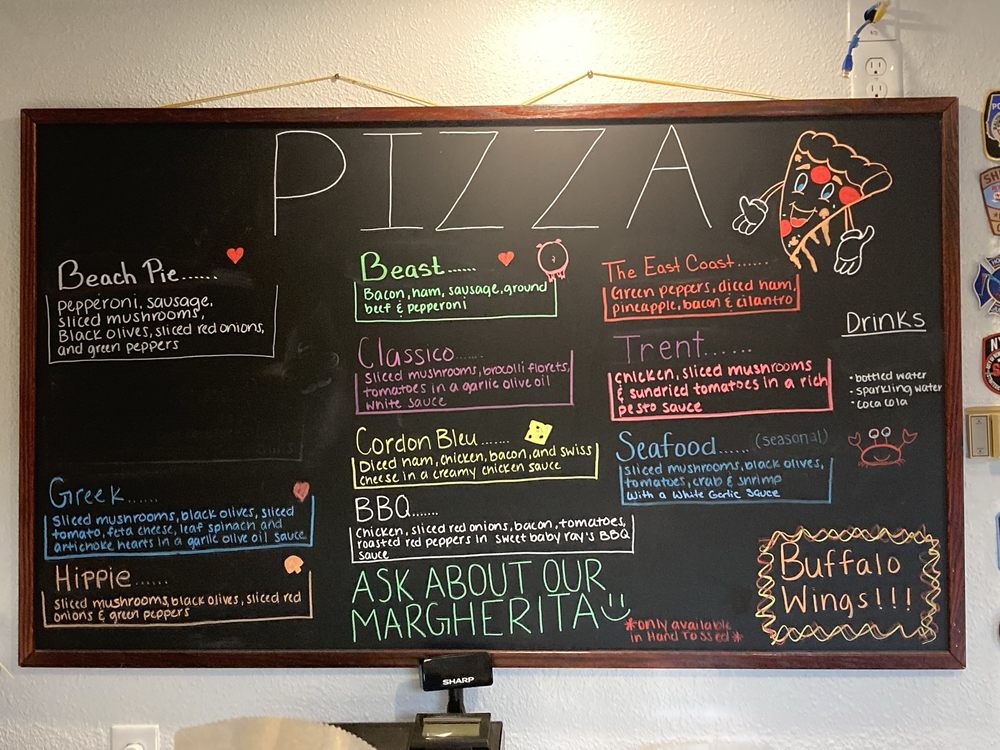 PIZZA
Beach Pie......
pepperoni, sausage,
sliced mushrooms,
Black olives, sliced red onions,
and green peppers
Greek......
Sliced mushrooms, black olives, sliced
tomato, feta cheese, leaf spinach and
artichoke hearts in a garlic olive oil sauce
Hippie......
Sliced mushrooms, black olives, sliced red
onions & green peppers
Beast......
Bacon, ham, sausage, ground
beef & pepperoni
Classico......
Sliced mushrooms, brocolli florets,
tomatoes in a garlic olive oil
white sauce
Cordon Bleu......
Diced ham, chicken, bacon, and swiss
cheese in a creamy chicken sauce
BBQ......
Chicken, sliced red onions, bacon, tomatoes,
roasted red peppers in sweet baby ray's BBQ
sauce
ASK ABOUT OUR
MARGHERITA
*only available
in Hand Tossed*
The East Coast......
Green peppers, diced ham,
pineapple, bacon & cilantro
Trent......
Chicken, sliced mushrooms
& sundried tomatoes in a rich
pesto sauce
Seafood...... (seasonal)
Sliced mushrooms, black olives,
tomatoes, crab & shrimp
with a White Garlic Sauce
Drinks
• bottled water
• sparkling water
• coca cola
Buffalo
Wings!!!
SHARP